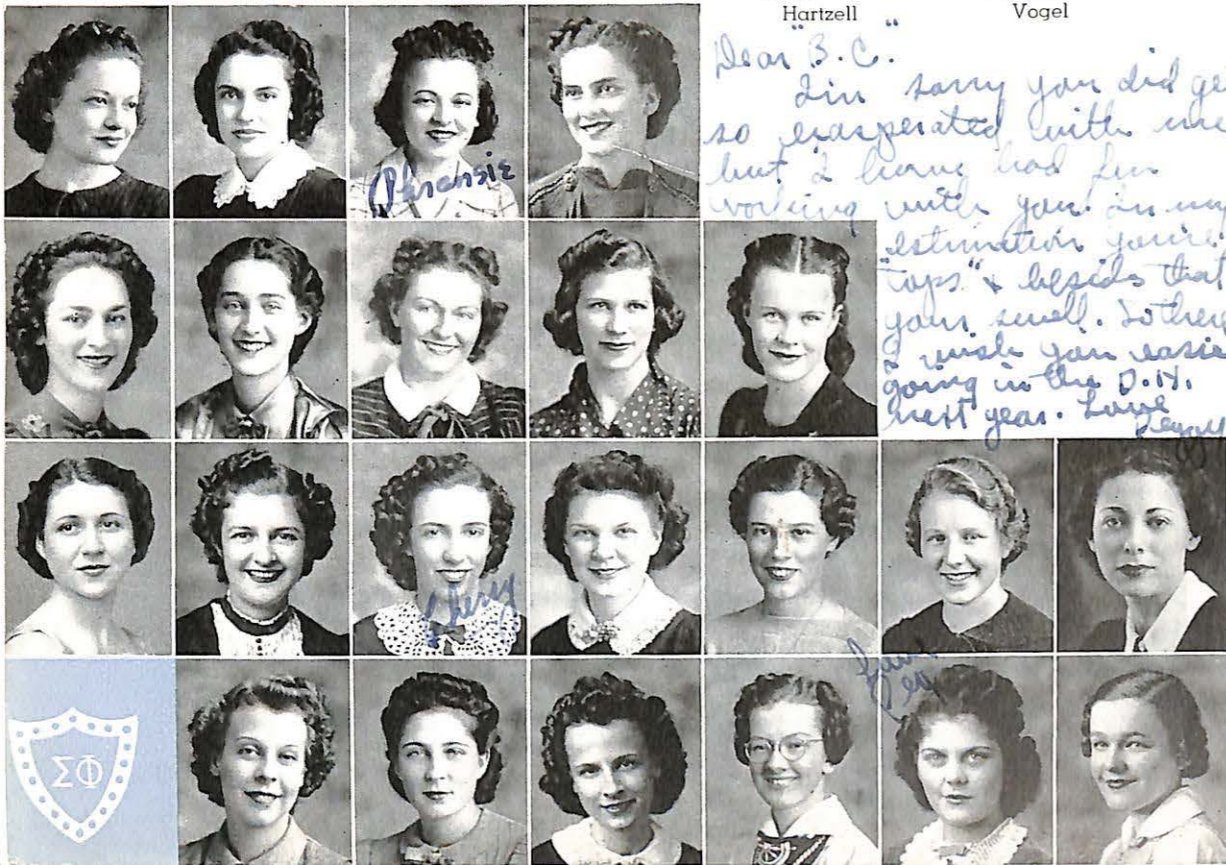 Hartzell Vogel
Dear "B.C."
I'm sorry you did get
so exasperated with me
but I have had fun
working with you. In my
estimation you're
"tops" & besides that
your swell. So there
I wish you easier
going in the D.H.
next year. Love
Peggy
Phrensie
Cherry
Love
Peg
ΣΦ